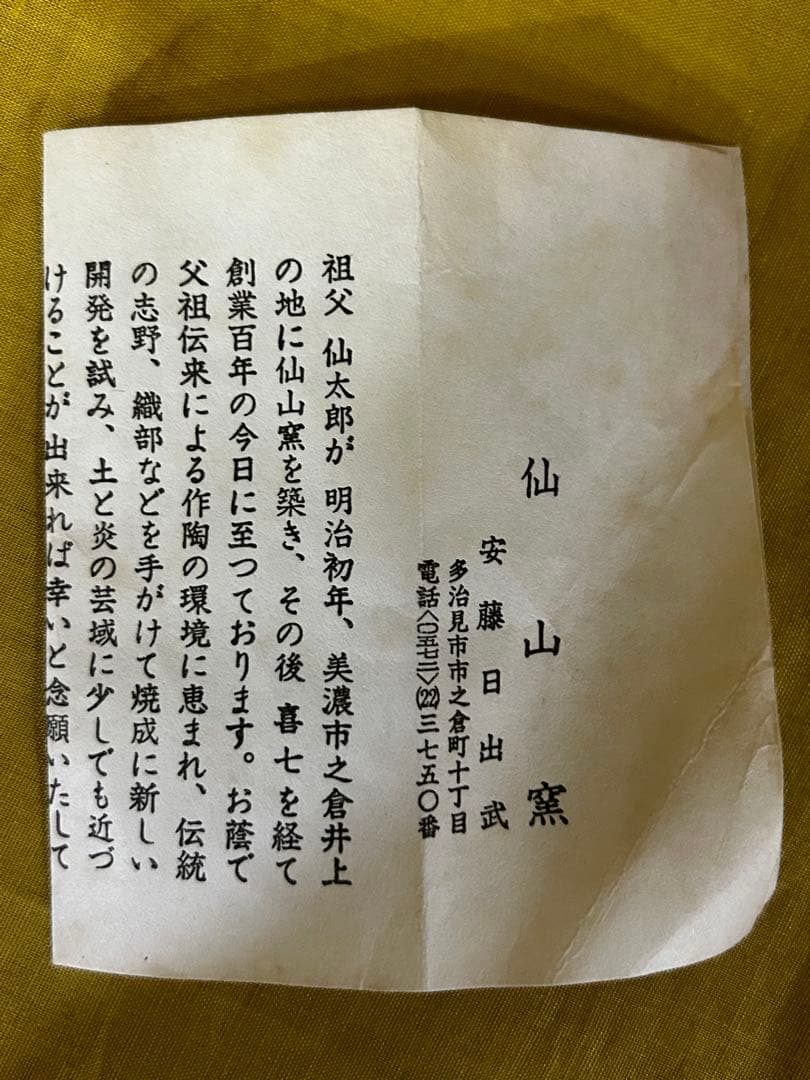 仙山窯
安藤日出武
多治見市市之倉町十丁目
電話〈〇五七二〉(22)三七五〇番
祖父 仙太郎が 明治初年、美濃市之倉井上
の地に仙山窯を築き、その後 喜七を経て
創業百年の今日に至つております。お蔭で
父祖伝来による作陶の環境に恵まれ、伝統
の志野、織部などを手がけて焼成に新しい
開発を試み、土と炎の芸域に少しでも近づ
けることが出来れば幸いと念願いたして